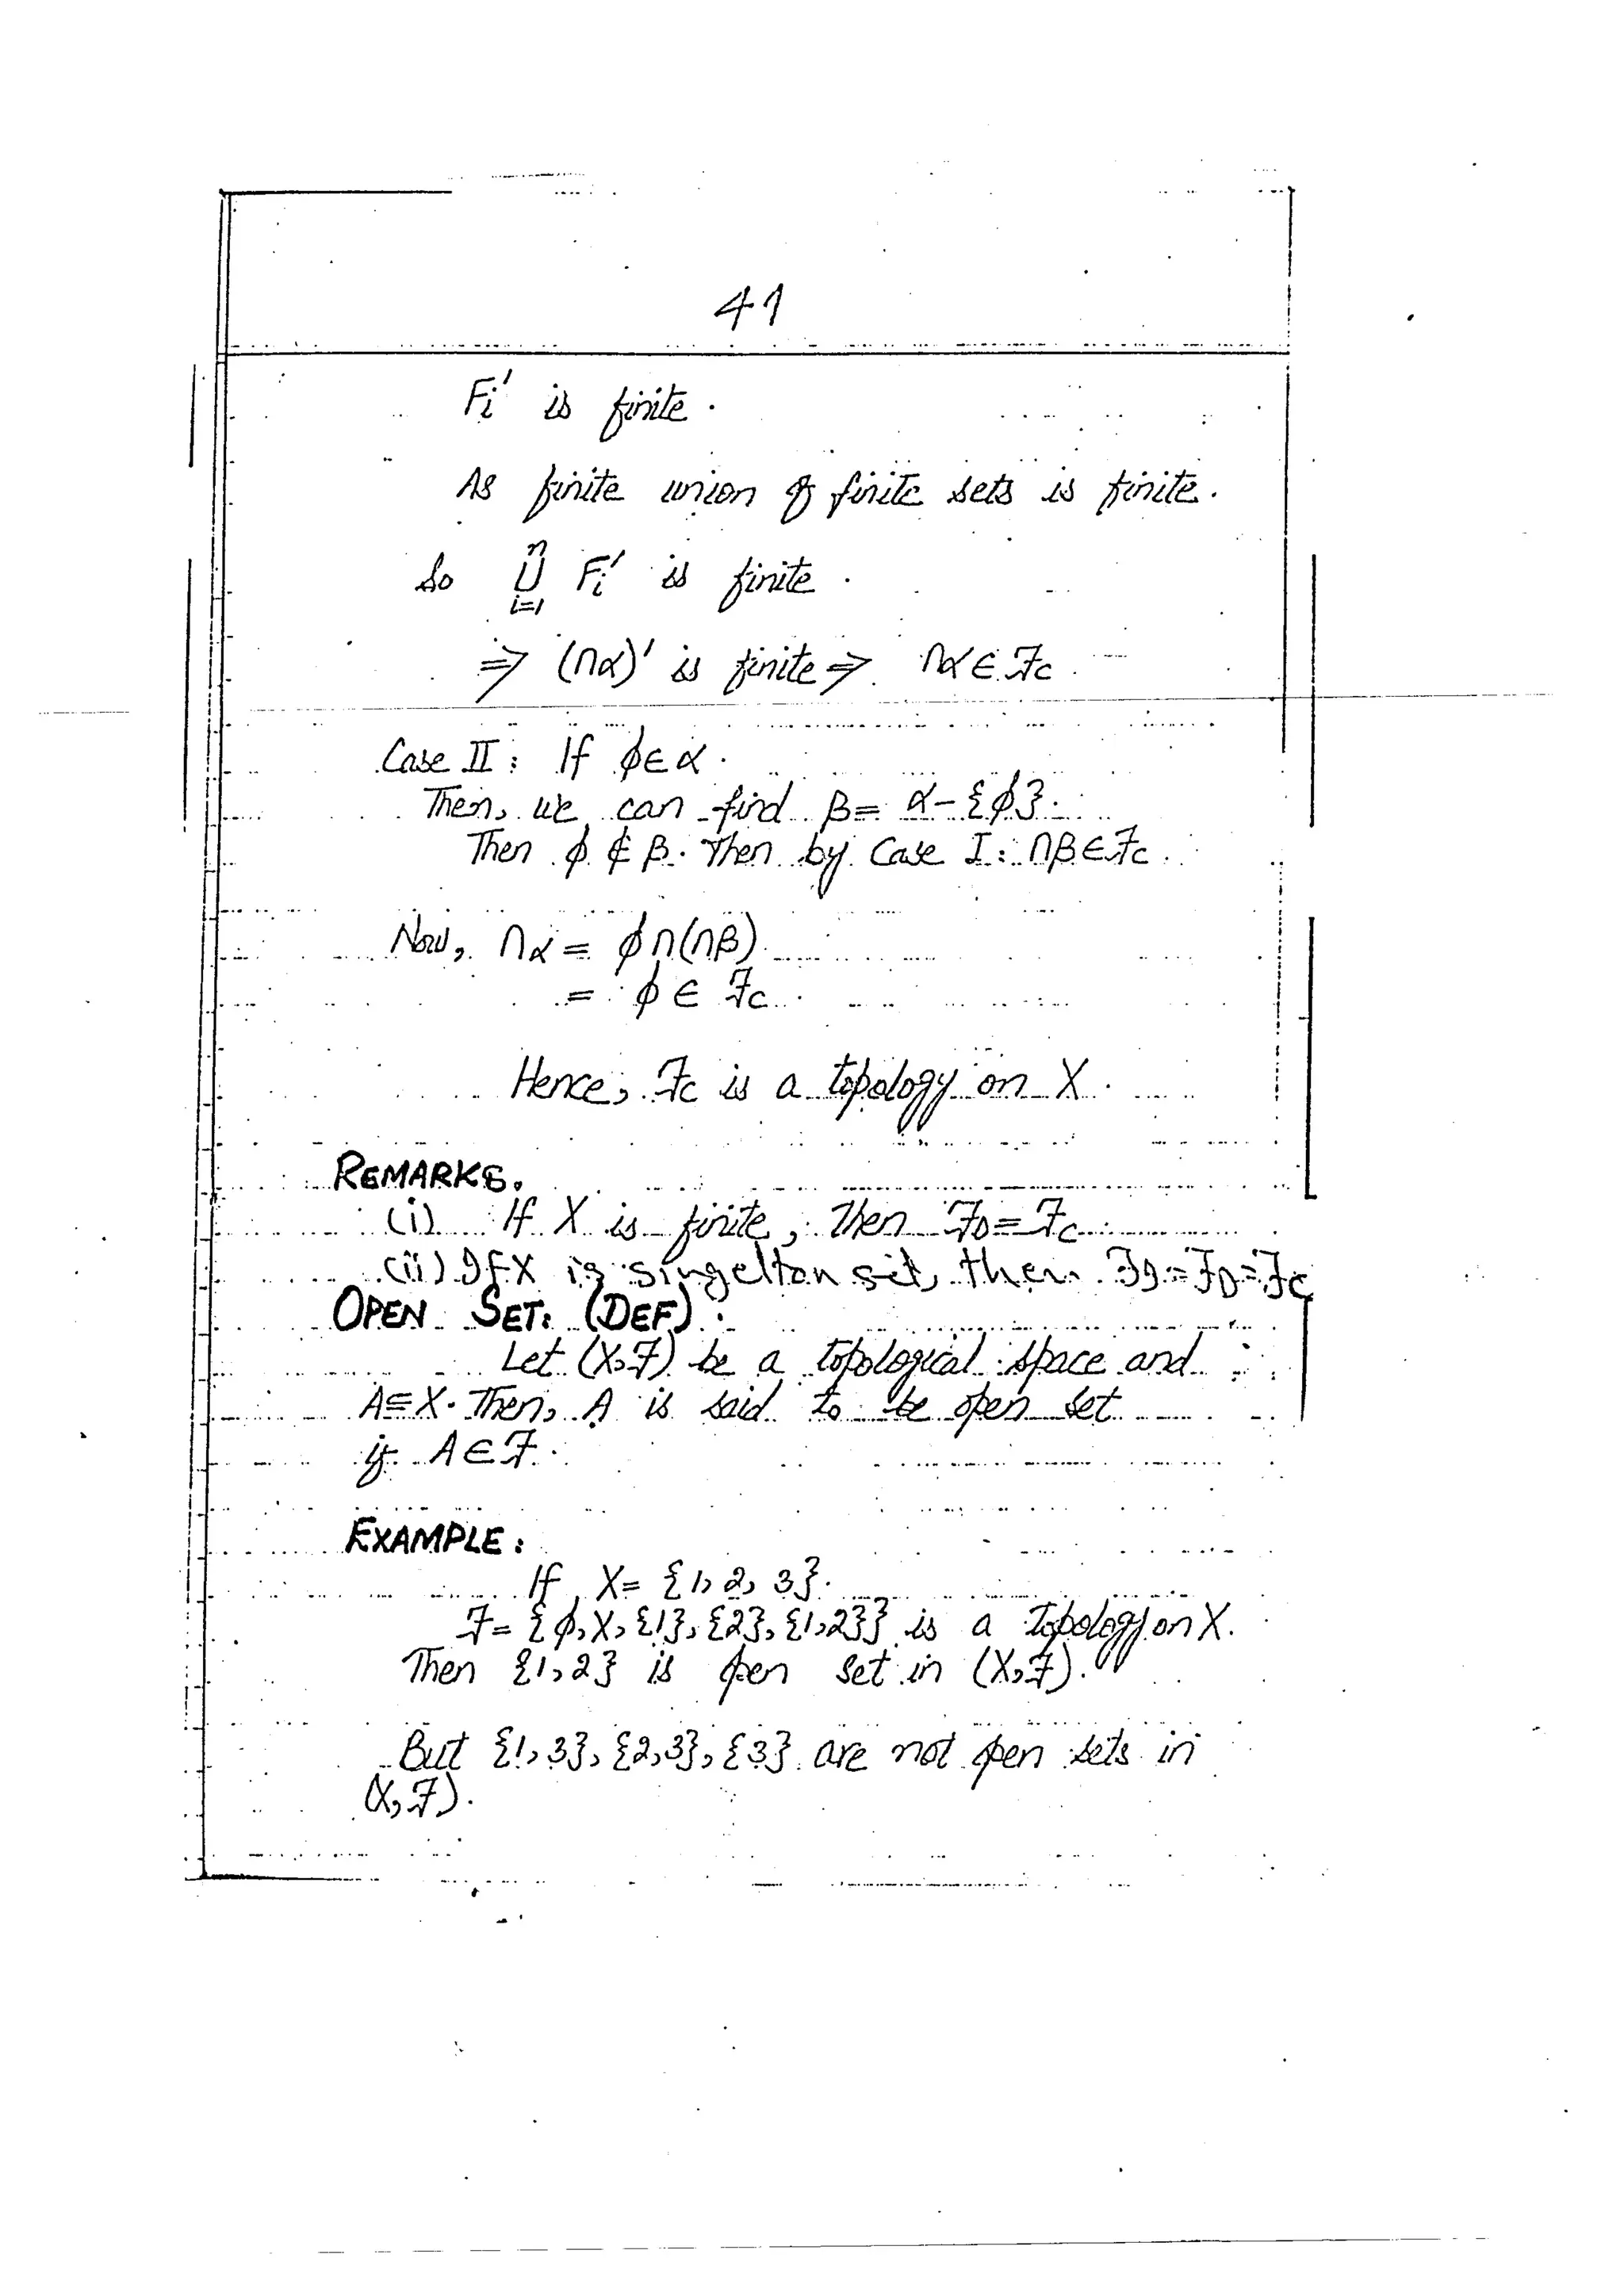 41
Fi' is finite.
As finite union of finite sets is finite.
So ⋃ⁿᵢ₌₁ Fi' is finite.
⇒ (∩α)' is finite ⇒ ∩α ∈ ℱc
Case II: If ϕ ∈ α.
Then, we can find β = α - {ϕ}.
Then ϕ ∉ β. Then by Case I: ∩β ∈ ℱc.
Now, ∩α = ϕ ∩ (∩β)
= ϕ ∈ ℱc.
Hence, ℱc is a topology on X.
REMARKS.
(i) If X is finite, Then ℱD = ℱc.
(ii) If X is singelton set, then ℱI = ℱD = ℱc
OPEN SET: (DEF):
Let (X, ℱ) be a topological space and
A ⊆ X. Then, A is said to be open set
if A ∈ ℱ.
EXAMPLE:
If X = {1, 2, 3}.
ℱ = {ϕ, X, {1}, {2}, {1,2}} is a Topology on X.
Then {1, 2} is open set in (X, ℱ).
But {1, 3}, {2,3}, {3} are not open sets in
(X, ℱ).